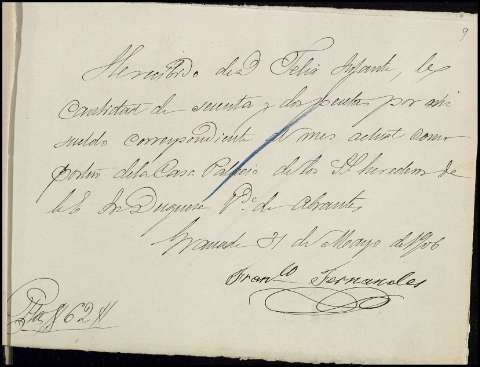 9
He recibido de D. Felix Infante, la
cantidad de sesenta y dos pesetas por mi
sueldo correspondiente al mes actual como
portero de la Casa Palacio de los Srs herederos de
la E Sra Duquesa Vda de Abrantes
Granada 31 de Mayo de 1906
Franco Fernandez
Pts 62